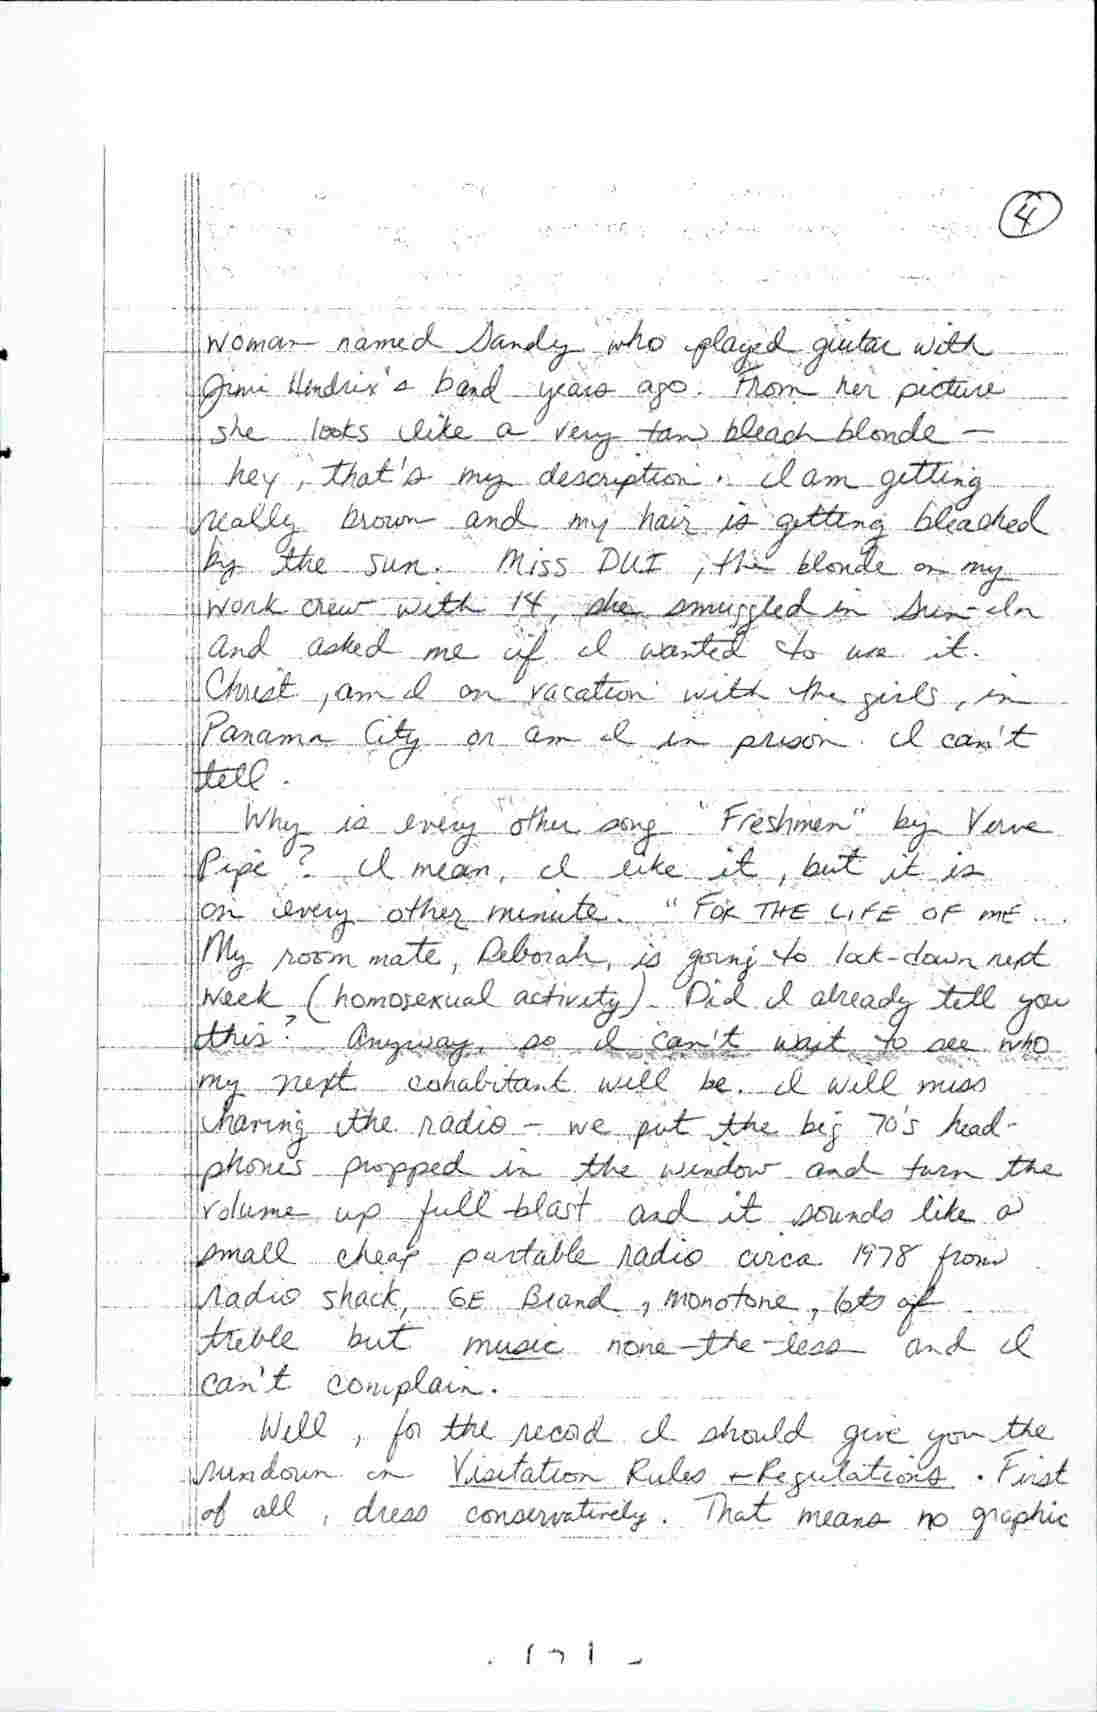 4
woman named Sandy who played guitar with
Jimi Hendrix's band years ago. From her picture
she looks like a very tan bleach blonde —
hey, that's my description. I am getting
really brown and my hair is getting bleached
by the sun. Miss DUI, the blonde on my
work crew with 14, she smuggled in Sun-In
and asked me if I wanted to use it.
Christ, am I on vacation with the girls, in
Panama City or am I in prison. I can't
tell.
Why is every other song "Freshmen" by Verve
Pipe? I mean, I like it, but it is
on every other minute. "FOR THE LIFE OF ME...
My room mate, Deborah, is going to lock-down next
week (homosexual activity). Did I already tell you
this? Anyway, so I can't wait to see who
my next cohabitant will be. I will miss
sharing the radio - we put the big 70's head-
phones propped in the window and turn the
volume up full-blast and it sounds like a
small cheap portable radio circa 1978 from
radio shack, GE Brand, monotone, lots of
treble but music none-the-less and I
can't complain.
Well, for the record I should give you the
rundown on Visitation Rules + Regulations. First
of all, dress conservatively. That means no graphic